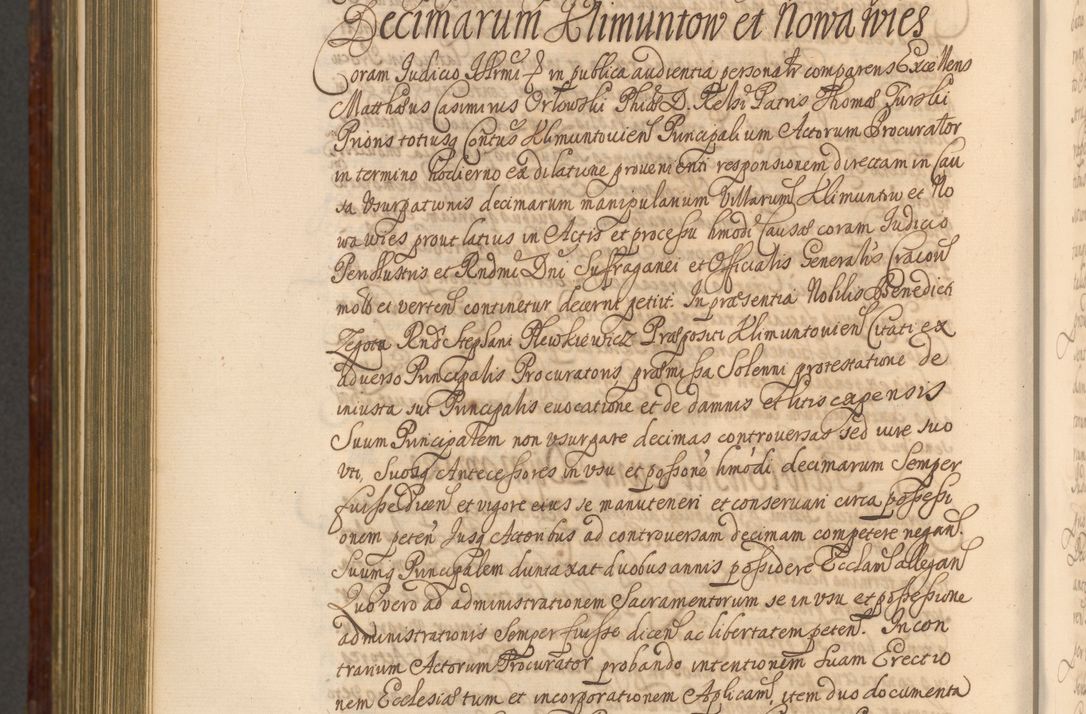 Decimarum Klimuntow et Nowa wies
Coram Judicio Illrmi &c in publica audientia personatr comparens Excellens
Matthæus Casimirus Orłowski Phiæ D. Relsi Patris Thomæ Turski
Prioris totiusq Contus Klimuntovien Principalium Actorum Procurator
in termino hodierno ex dilatione provenienti responsionem directam in Cau
sa Vsurpationis decimarum manipularium Villarum Klimuntow et No
wa wies prout latius in Actis et processu hmodi Causæ coram Judicio
Perillustris et Rndmi Dni Suffraganei et Officialis Generalis Cracovi
moto ei verten continetur decerni petiit. In præsentia Nobilis Benedicti
Zegota Rndi Stephani Plewkiewicz Præpositi Klimuntovien Citati ex
adverso Principalis Procuratoris præmissa Solenni protestatione de
iniusta sui Principalis evocatione et de damnis et litis expensis
Suum Principalem non vsurpare decimas controversas sed iure suo
vti, Suosq Antecessores in vsu et possone hmodi decimarum Semper
fuisse Dicen et vigore eius se manuteneri et conservari circa possessi
onem peten Jusq Actoribus ad controversam decimam competere negan.
Suumq Principalem duntaxat duobus annis possidere Ecclam allegan
Quo vero ad administrationem Sacramentorum se in vsu et possessione
administrationis Semper fuisse dicen ac libertatem peten. In con
trarium Actorum Procurator probando intentionem suam Erectio
nem Ecclesiæ tum et incorporationem Aplicam, item duo documenta